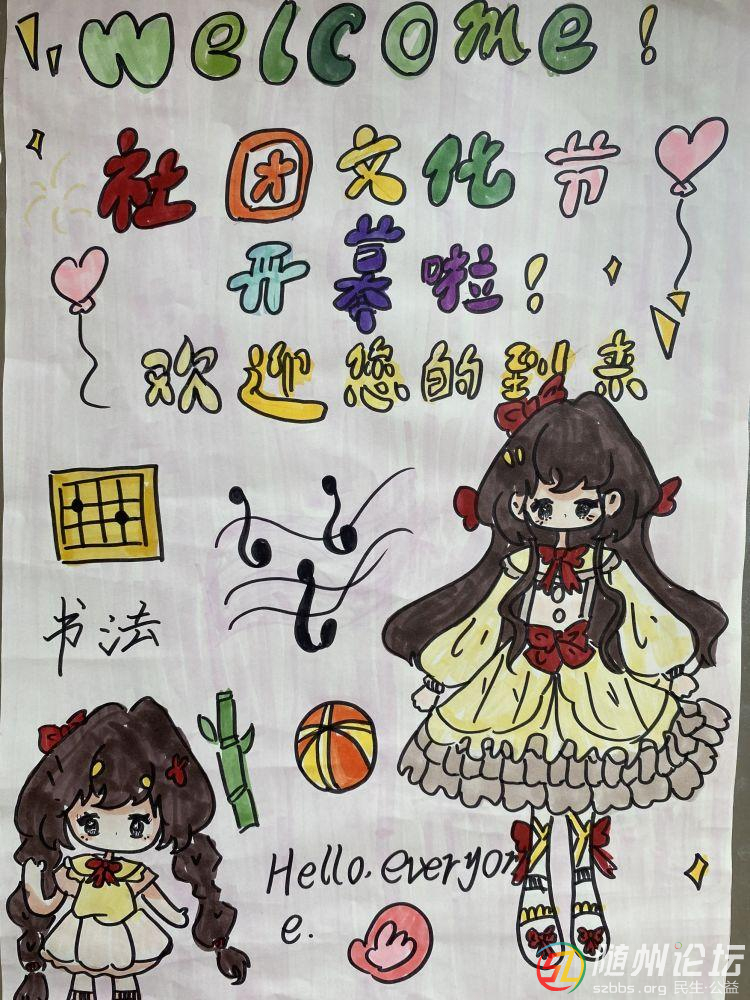 Welcome!
社团文化节
开幕啦!
欢迎您的到来
书法
Hello, everyon
e.
随州论坛
szbbs.org 民生·公益